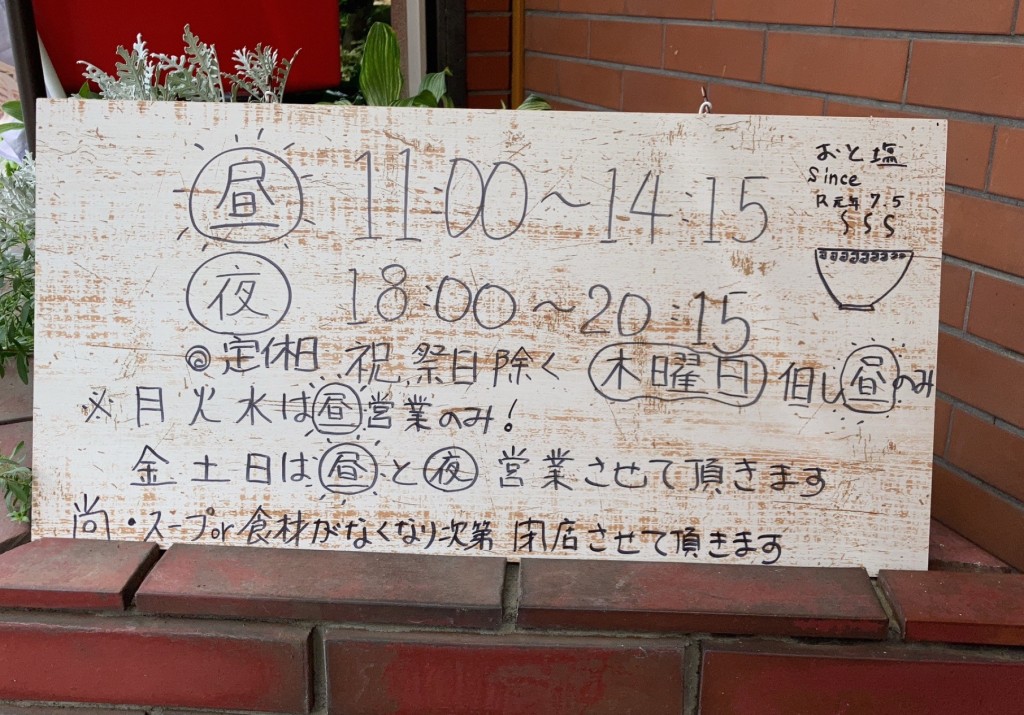 昼 11:00~14:15
おと塩
Since
R元年 7.5
夜 18:00~20:15
◎定休日 祝祭日除く 木曜日 但し昼のみ
※月火水は昼営業のみ!
金土日は昼と夜営業させて頂きます
尚・スープor食材がなくなり次第 閉店させて頂きます